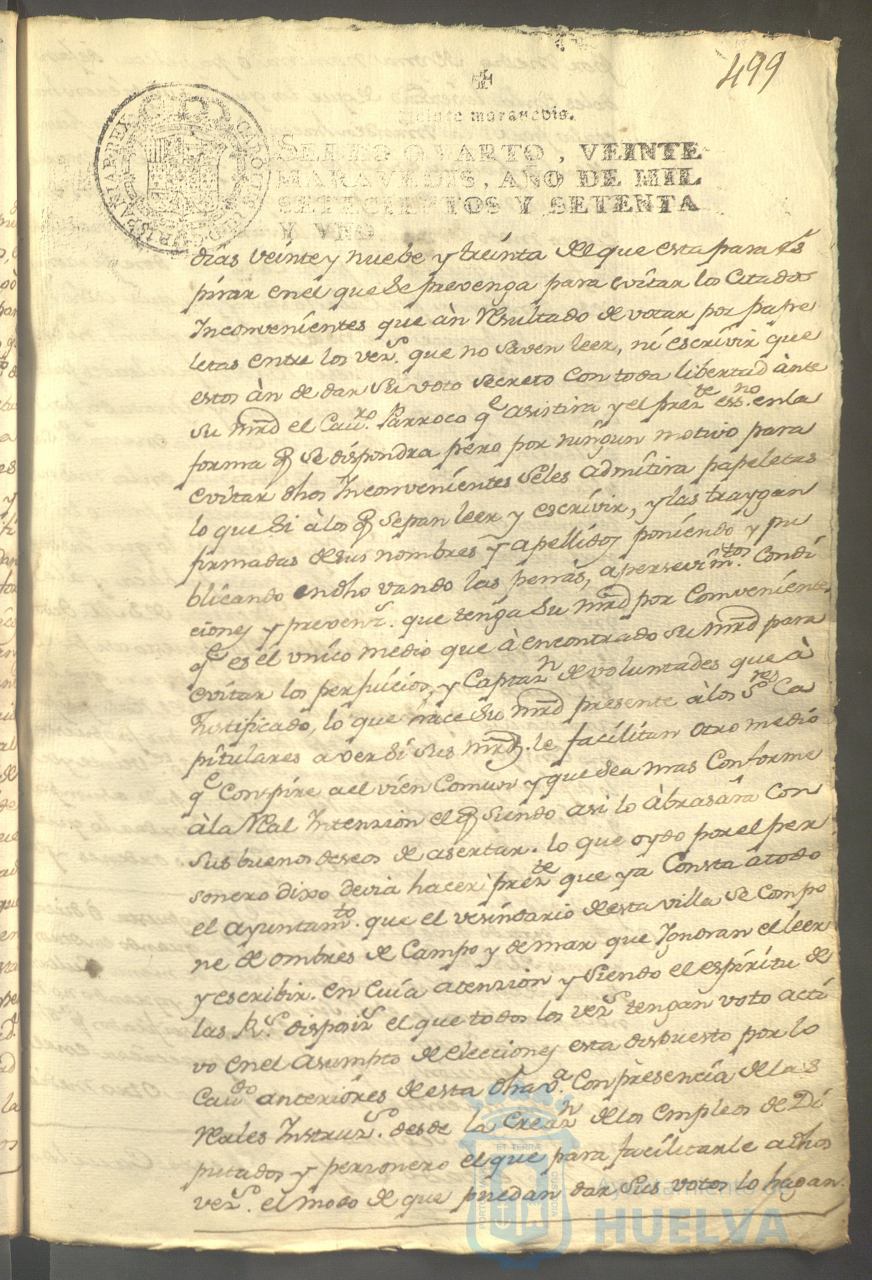 499
Veinte maravedis.
SELLO QVARTO, VEINTE
MARAVEDIS, AÑO DE MIL
SETECIENTOS Y SETENTA
Y VNO
CAROLUS III D G HISPANIAR REX
dias veinte y nuebe y treinta del que esta para es
pirar en el que se prevenga para evitar los Citados
Inconvenientes que àn resultado de votar por papre
letas entre los vezs. que no saven leer, ni escrivir que
estos àn de dar su voto secreto con toda libertad ànte
su mrd el Caurº. Parroco qe asistira y el preste esnº. en la
forma q se dispondra pero por ningun motivo para
evitar dhos Inconvenientes seles admitira papeletas
lo que si à los q sepan leer y escrivir, y las traygan
firmadas de sus nombres y apellidos poniendo y pu
blicando en dho vando las penas, apersevimtos. Condi
ciones y prevenzs. que tenga su mrd por Conveniente
qe es el vnico medio que à encontrado su mrd para
evitar los perjuicios, y Captazn de voluntades que à
Justificado, lo que hace su mrd presente à los Sres Ca
pitulares a ver si sus mrds. le facilitan otro medio
qe Conspire a el vien Comun y que sea mas Conforme
à la Real Intenzion el q siendo asi lo àbrasara con
sus buenos deseos de asertar. lo que oydo por el per
sonero dixo devia hacer preste que ya Consta a todo
el ayuntamto. que el vesindario de esta villa se Compo
ne de ombres de Campo y de mar que Ygnoran el leer
y escribir. en Cuia atenzion y siendo el espiritu de
las Rs. dispoizs. el que todos los vezs. tengan voto acti
vo en el asumpto de elecciones esta dispuesto por lo
Cavdo anteriores de esta dha va. Con presencia de las
Reales Instruzs. desde la Creazn de los empleos de Di
putados y personero el que para facilitarle a dhos
vezs. el modo de que puedan dar sus votos lo hagan
Ayuntamiento de
HUELVA